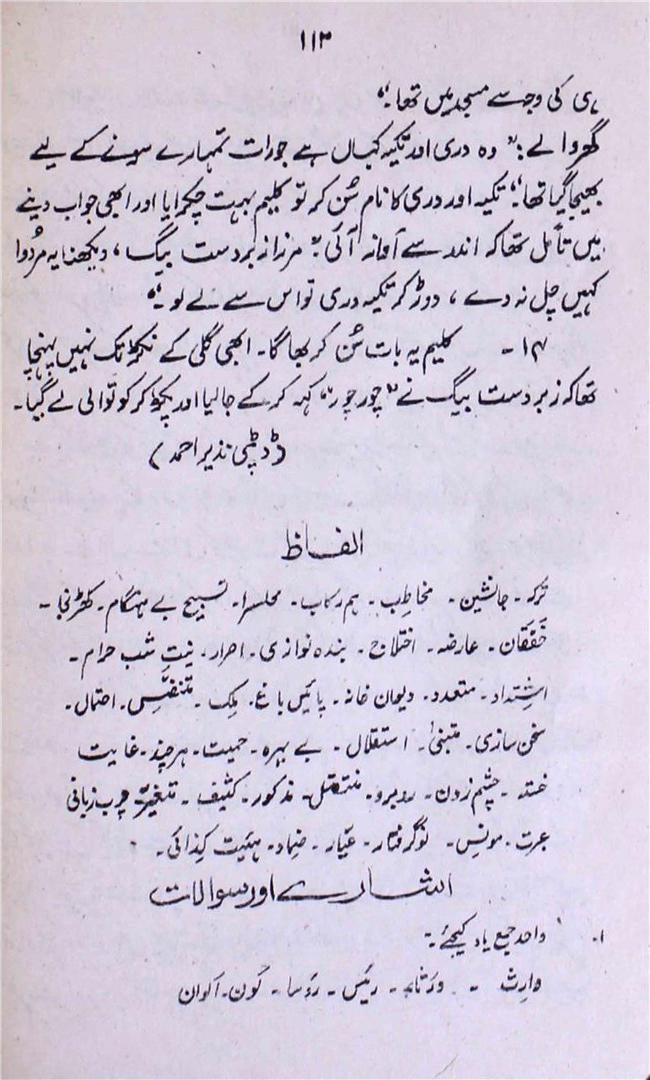 ۱۱۳
ہی کی وجہ سے مسجد میں تھا۔"
گھر والے: "وہ دری اور تکیہ کہاں ہے جو رات تمہارے سونے کے لیے
بھیجا گیا تھا"؛ تکیہ اور دری کا نام سُن کر تو کلیم بہت چکرایا اور ابھی جواب دینے
میں تأمل تھا کہ اندر سے آواز آئی: "مرزا زبردست بیگ، دیکھنا یہ مُردُوا
کہیں چل نہ دے، دوڑ کر تکیہ دری تو اس سے لے لو۔"
۱۴۔ کلیم یہ بات سُن کر بھاگا۔ ابھی گلی کے نکڑ تک نہیں پہنچا
تھا کہ زبردست بیگ نے "چور چور" کہہ کر کے جا لیا اور پکڑ کر کوتوالی لے گیا۔
(ڈپٹی نذیر احمد)
الفاظ
ترکہ۔ جانشین۔ مخاطِب۔ ہم رکاب۔ محلسرا۔ تسبیح بے ہنگام۔ کھڑنجا۔
خَفَقَان۔ عارضہ۔ اختلاج۔ بندہ نوازی۔ احرار۔ نیتِ شب حرام۔
اشتداد۔ متعدد۔ دیوان خانہ۔ پائیں باغ۔ مِلک۔ متنفّس۔ احتمال۔
سخن سازی۔ متبنیٰ۔ استقلال۔ بے بہرہ۔ حمیت۔ ہر چند۔ غایت
خستہ۔ چشم زدن۔ روبرو۔ منتقل۔ مذکور۔ کثیف۔ متغیّر۔ چرب زبانی
عبرت۔ مونس۔ نوگرفتار۔ عیّار۔ ضماد۔ ہئیت کِذائی۔
اشارے اور سوالات
۱۔ واحد جمع یاد کیجئے۔
وارِث ۔ ورثاء۔ رئیس۔ رؤسا۔ لَون۔ الوان